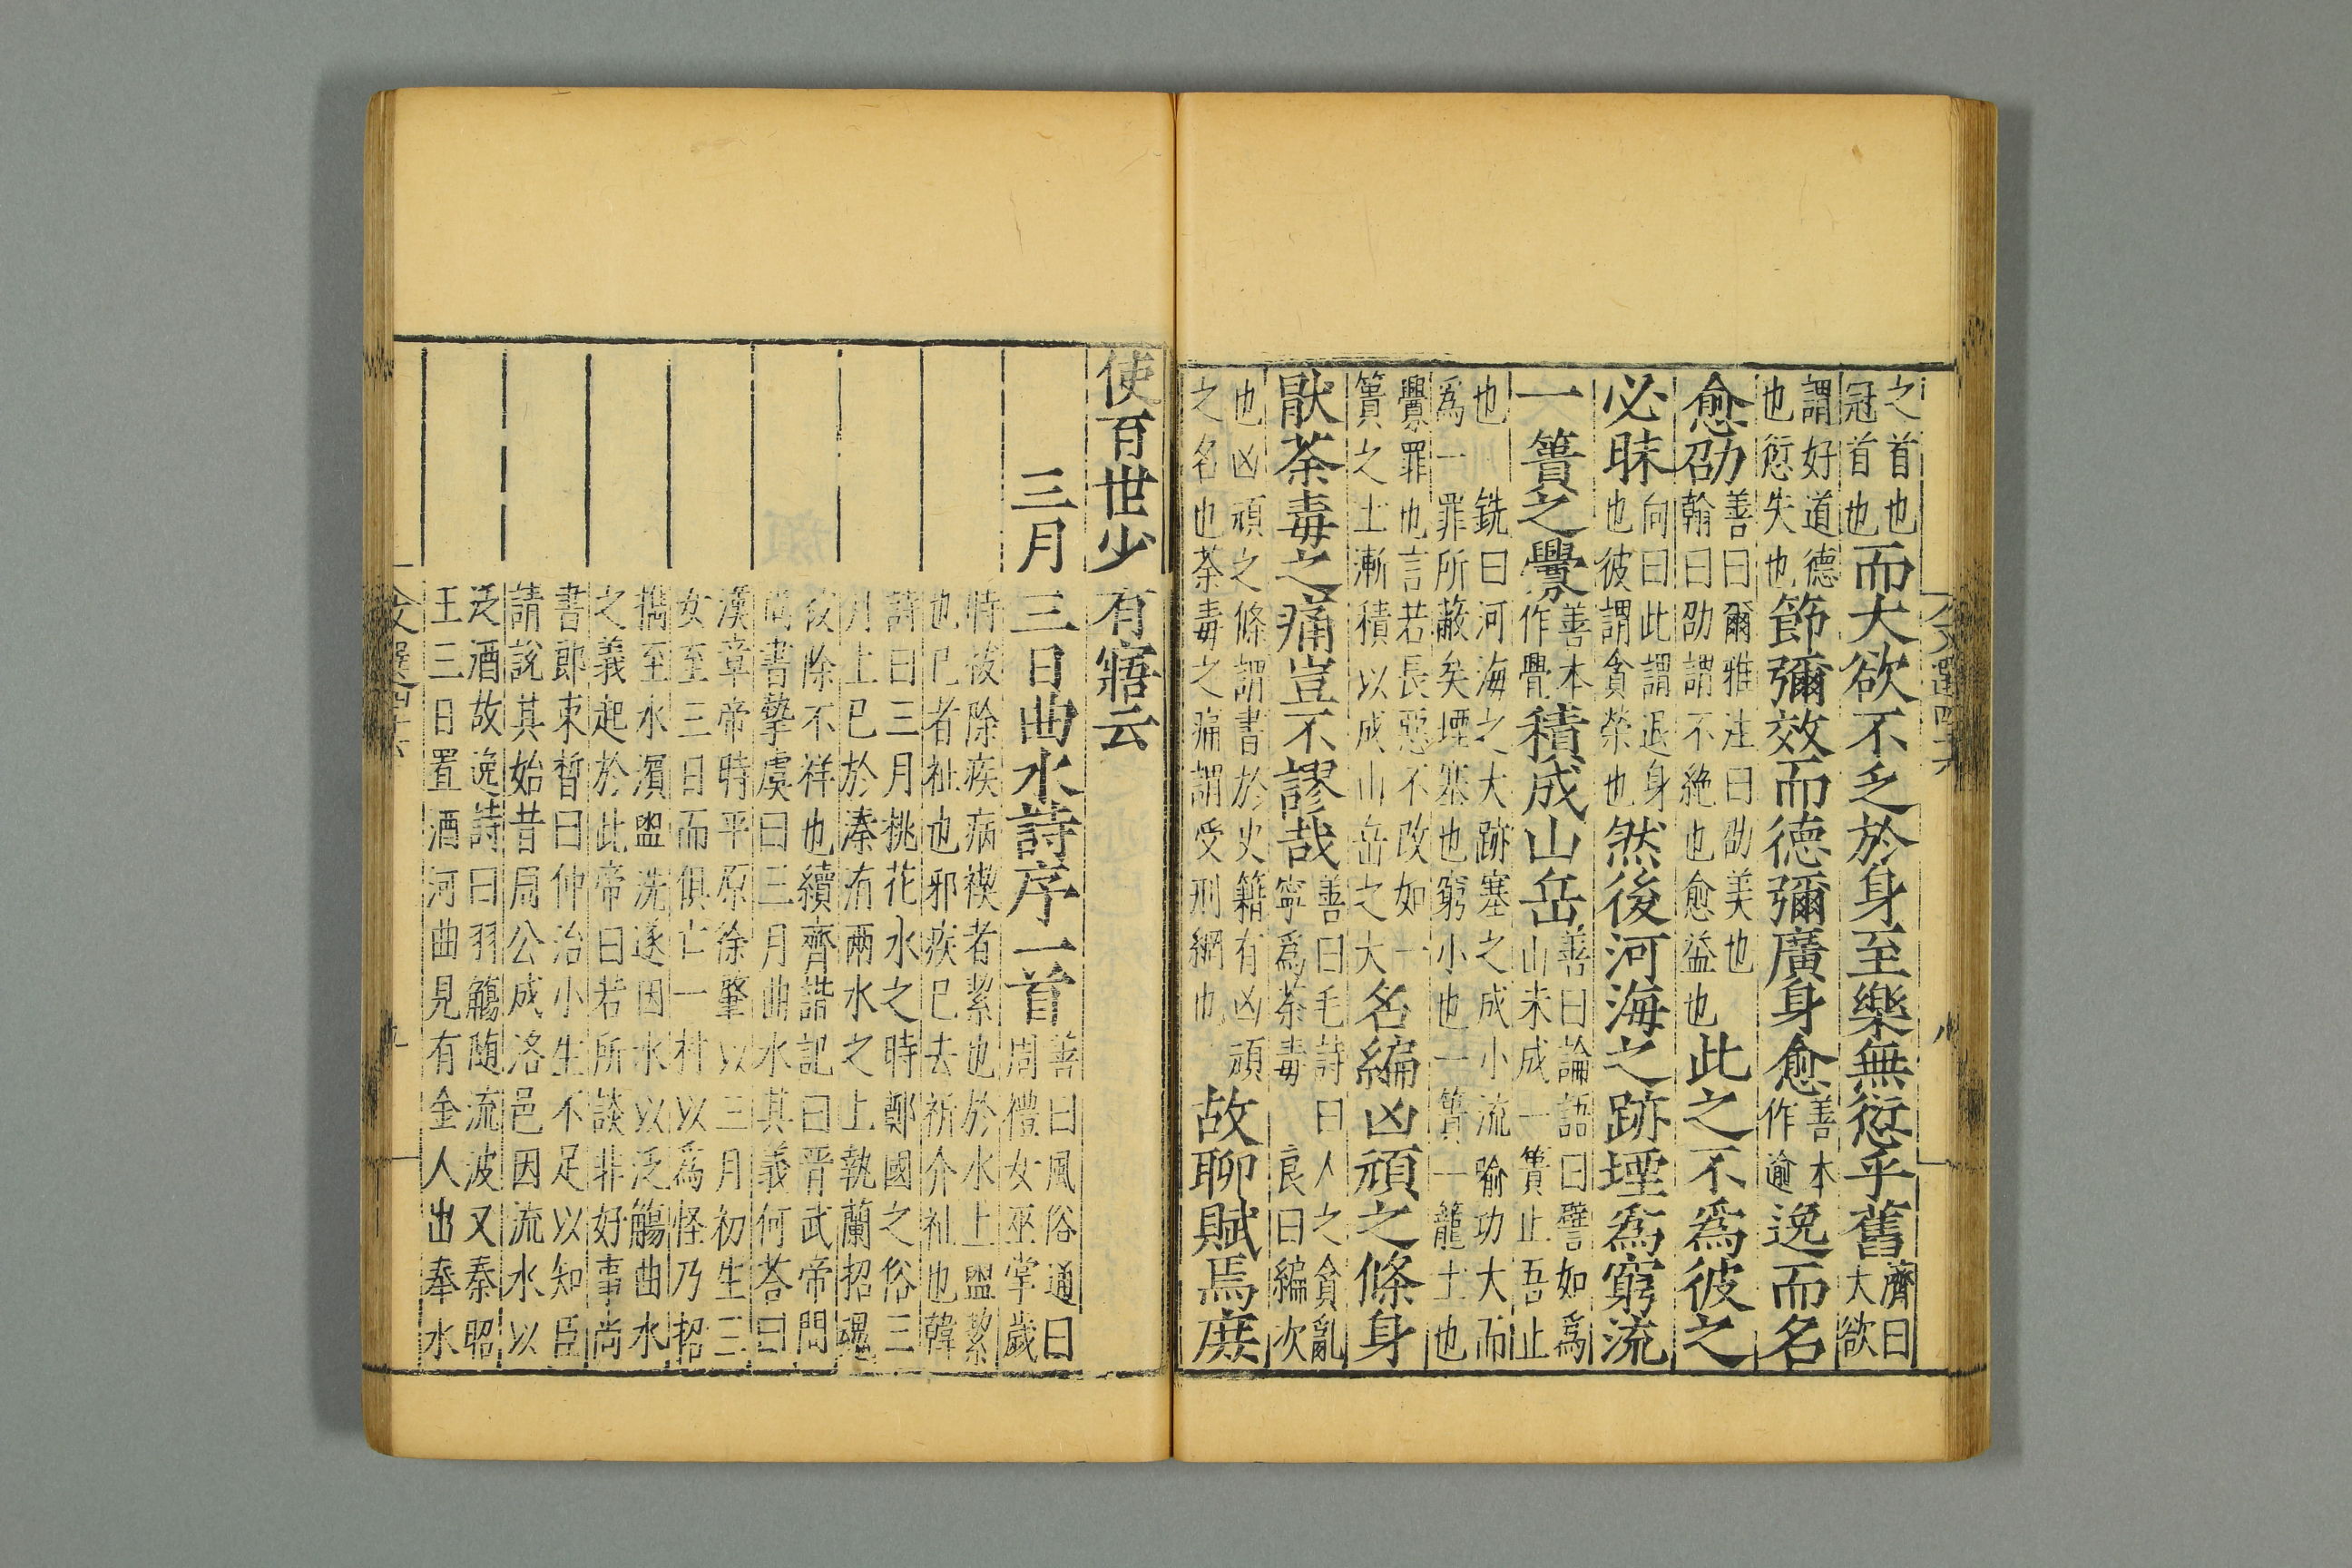 之首也
冠首也
而大欲不乏於身至樂無愆乎舊
濟曰
大欲
謂好道德
也愆失也
節彌效而德彌廣身愈
善本
作逾
逸而名
愈劭
善曰爾雅注曰劭美也
翰曰劭謂不絶也愈益也
此之不爲彼之
必昧
向曰此謂退身
也彼謂貪榮也
然後河海之跡堙爲窮流
一簣之釁
善本
作釁
積成山岳
善曰論語曰譬如爲
山未成一簣止吾止
也 銑曰河海之大跡塞之成小流喻功大而
爲一罪所蔽矣堙塞也窮小也一簣一籠土也
釁罪也言若長惡不改如一
簣之土漸積以成山岳之大
名編凶頑之條身
猒荼毒之痛豈不謬哉
善曰毛詩曰人之貪亂
寧爲荼毒 良曰編次
也凶頑之條謂書於史籍有凶頑
之名也荼毒之痛謂受刑網也
故聊賦焉庶
使百世少有寤云
三月三日曲水詩序一首
善曰風俗通曰
周禮女巫掌歲
時祓除疾病禊者絜也於水上盥絜
也巳者祉也邪疾巳去祈介祉也韓
詩曰三月桃花水之時鄭國之俗三
月上巳於溱洧兩水之上執蘭招魂
祓除不祥也續齊諧記曰晉武帝問
尚書摯虞曰三月曲水其義何荅曰
漢章帝時平原徐肇以三月初生三
女至三日而俱亡一村以爲怪乃招
攜至水濱盥洗遂因水以泛觴曲水
之義起於此帝曰若所談非好事尚
書郎束晳曰仲治小生不足以知臣
請說其始昔周公成洛邑因流水以
泛酒故逸詩曰羽觴隨流波又秦昭
王三日置酒河曲見有金人出奉水
文選四十六
八
文選四十六
九